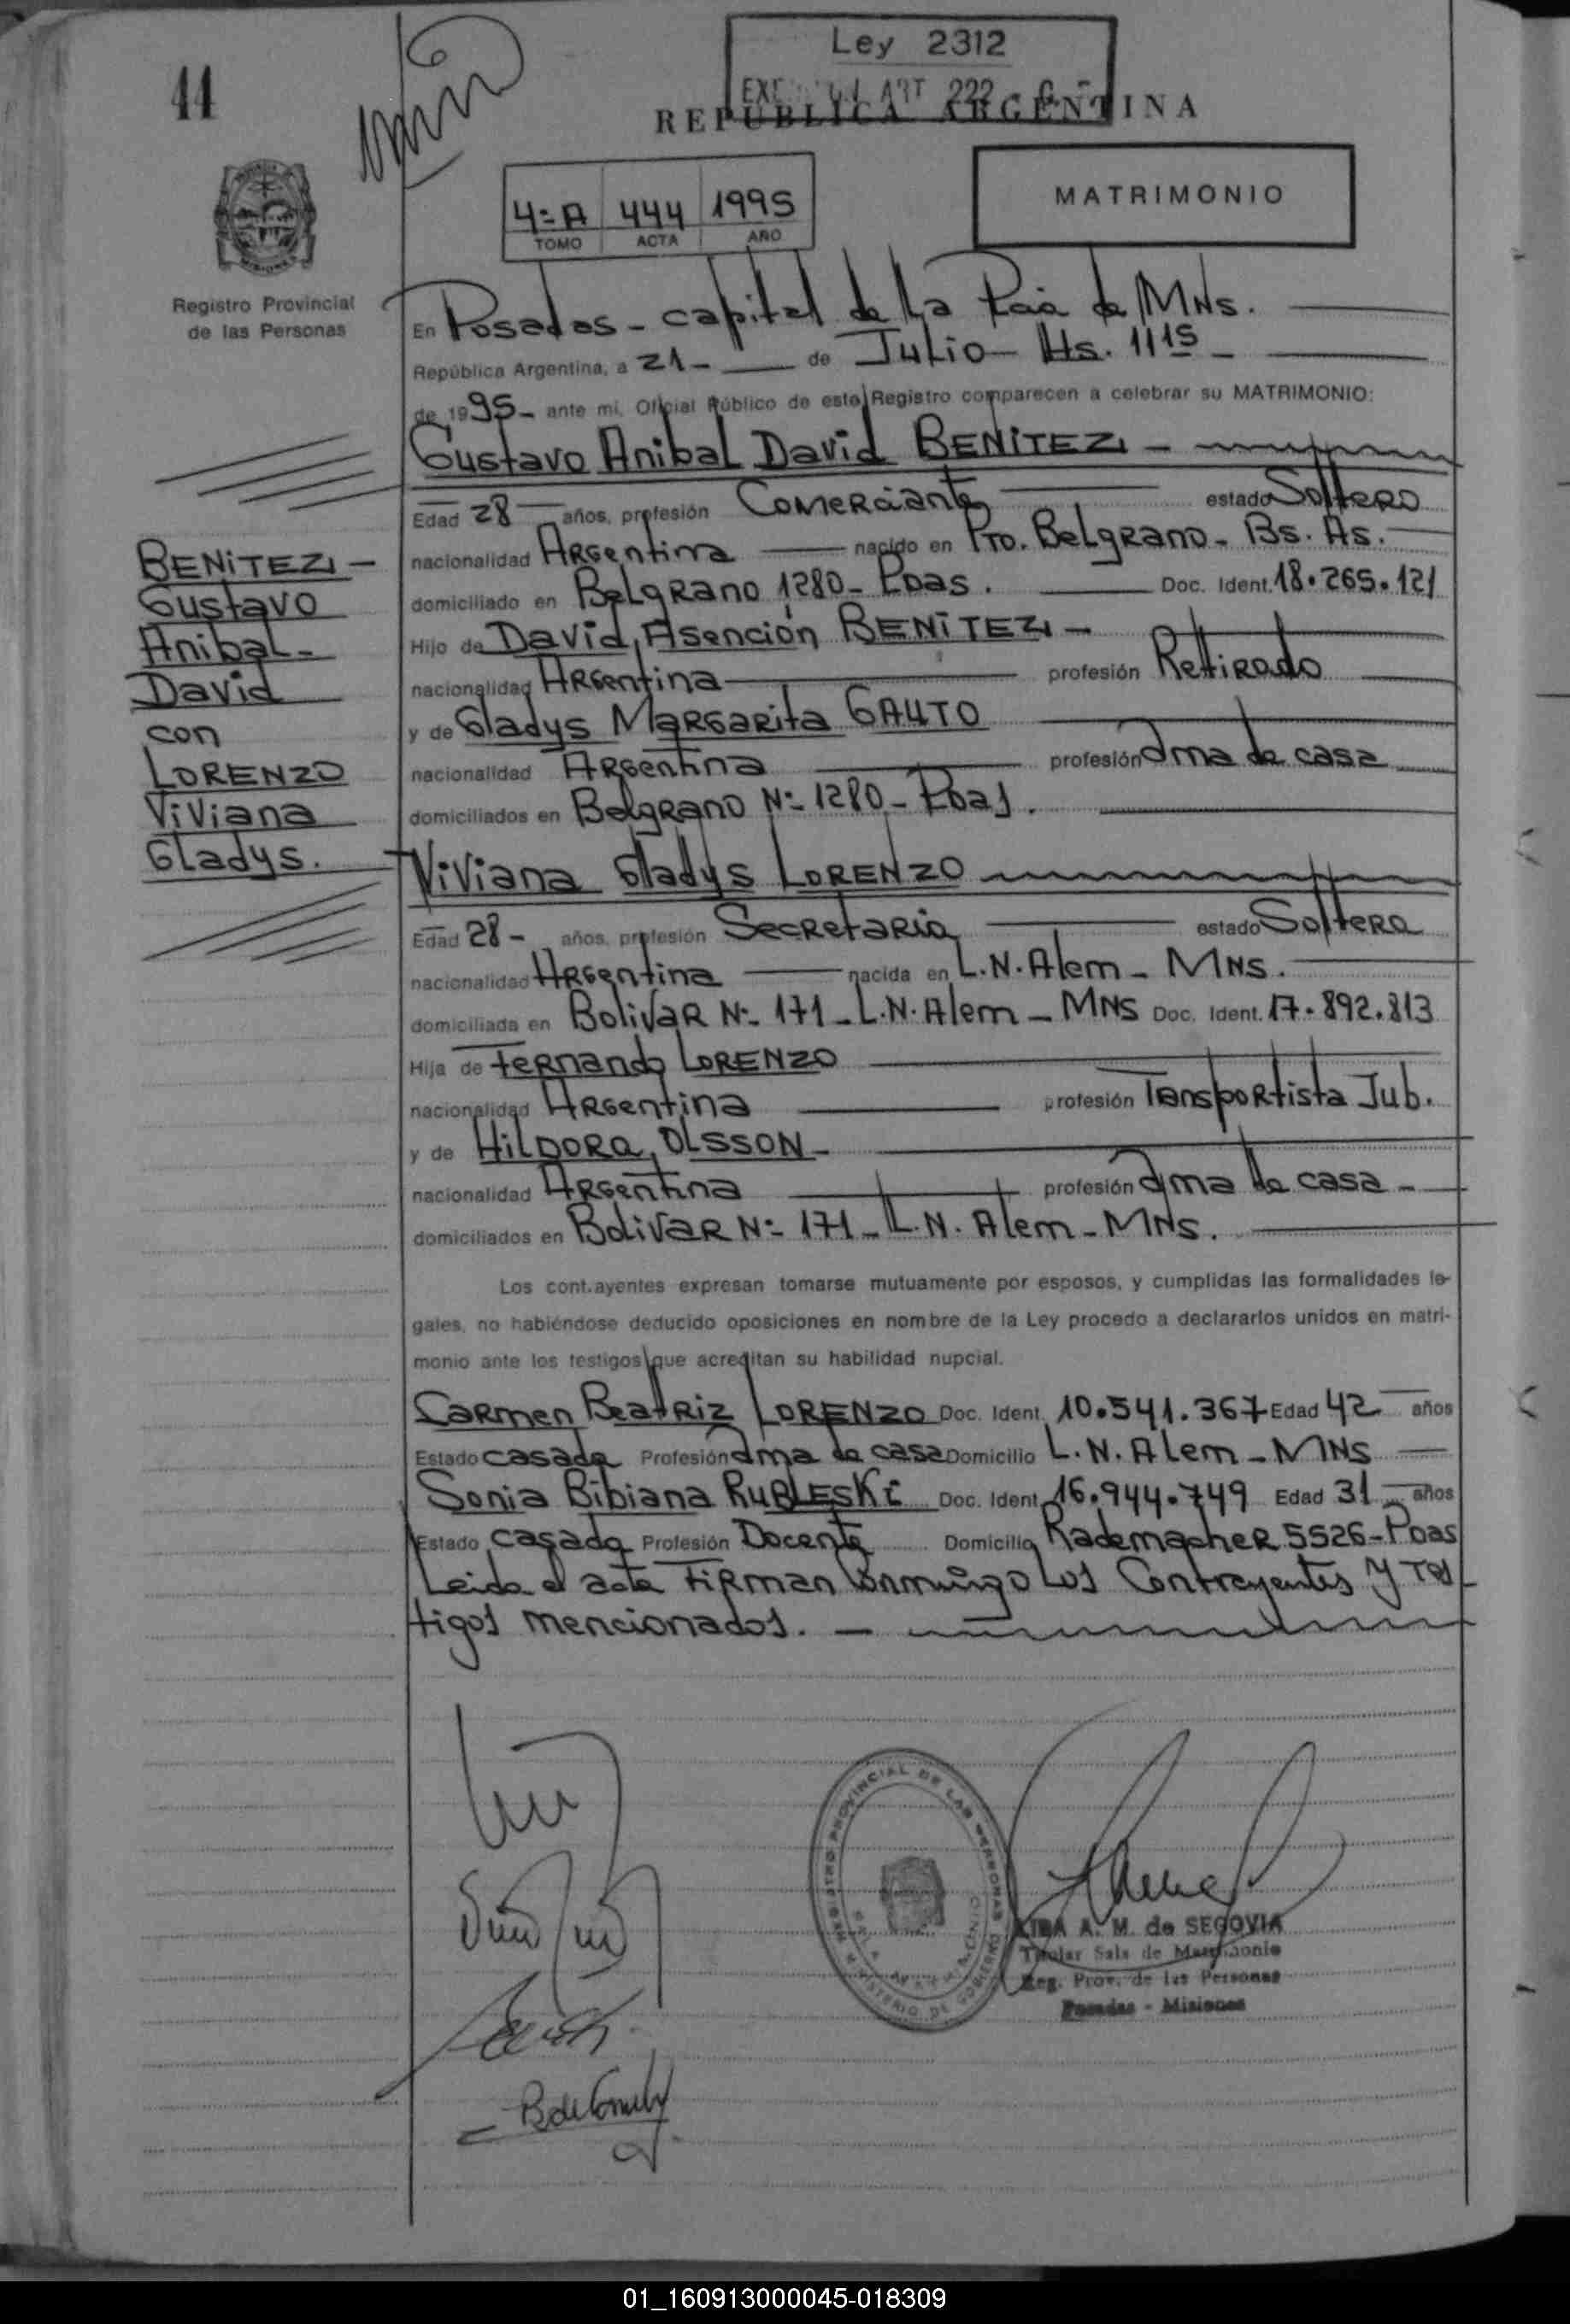 44
Ley 2312
ART 222
REPUBLICA ARGENTINA
4=A 444 1995
TOMO ACTA AÑO
MATRIMONIO
MISIONES
Registro Provincial
de las Personas
En Posadas - capital de la Pcia de MNs.
República Argentina, a 21 - de Julio - Hs. 11 15 -
de 1995 - ante mi, Oficial Público de este Registro comparecen a celebrar su MATRIMONIO:
Gustavo Anibal David BENiTEZ -
Edad 28 años, profesión Comerciante estado Soltero
nacionalidad Argentina nacido en Pto. Belgrano - Bs. As.
domiciliado en Belgrano 1280 - Pdas. Doc. Ident. 18.265.121
Hijo de David Asención BENiTEZ -
nacionalidad Argentina profesión Retirado
y de Gladys Margarita GAUTO
nacionalidad Argentina profesión ama de casa
domiciliados en Belgrano N:- 1280 - Pdas.
BENiTEZ -
Gustavo
Anibal -
David
con
LORENZO
Viviana
Gladys.
Viviana Gladys LORENZO
Edad 28 - años, profesión Secretaria estado Soltera
nacionalidad Argentina nacida en L.N. Alem - MNs.
domiciliada en Bolivar N:- 171 - L.N. Alem - MNs Doc. Ident. 17.892.813
Hija de Fernando LORENZO
nacionalidad Argentina profesión Transportista Jub.
y de HiLDORa OLSSON -
nacionalidad Argentina profesión ama de casa -
domiciliados en Bolivar N:- 171 - L.N. Alem - MNs.
Los cont.ayentes expresan tomarse mutuamente por esposos, y cumplidas las formalidades le-
gales, no habiéndose deducido oposiciones en nombre de la Ley procedo a declararlos unidos en matri-
monio ante los testigos que acreditan su habilidad nupcial.
Carmen Beatriz LORENZO Doc. Ident. 10.541.367 Edad 42 años
Estado casada Profesión ama de casa Domicilio L.N. Alem - MNS
Sonia Bibiana RUBLESKi Doc. Ident. 16.944.749 Edad 31 años
Estado casada Profesión Docente Domicilio Rademacher 5526 - Pdas
Leida el acta firman conmigo Los Contrayentes y Tes
tigos mencionados. -
REGISTRO PROVINCIAL DE LAS PERSONAS
MINISTERIO DE GOBIERNO
A. M. de SEGOVIA
Titular Sala de Matrimonio
Reg. Prov. de las Personas
Posadas - Misiones
01_160913000045-018309